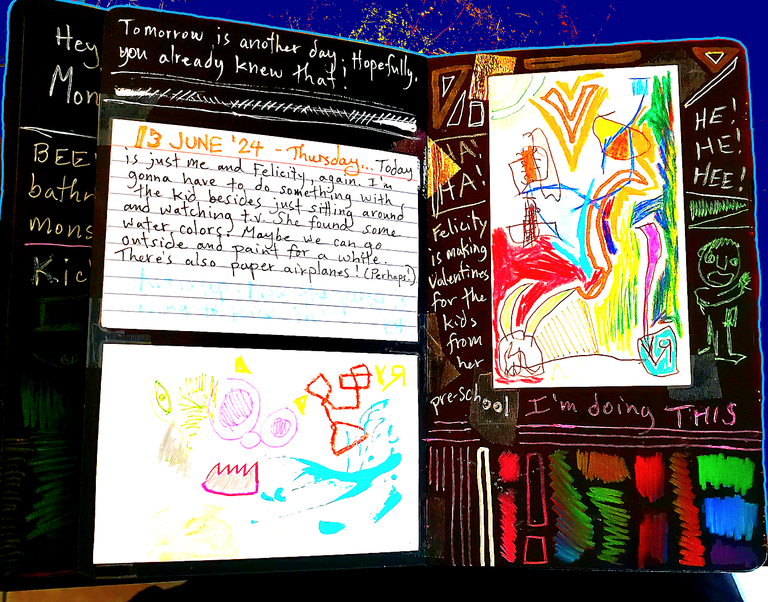 Hey
Mon
BEE
bathr
mons
Kic
Tomorrow is another day, Hopefully.
you already knew that!
13 JUNE '24 - Thursday... Today
is just me and Felicity, again. I'm
gonna have to do something with
the kid besides just sitting around
and watching t.v. She found some
water colors? Maybe we can go
outside and paint for a while.
There's also paper airplanes! (Perhaps!)
HA!
HA!
Felicity
is making
Valentines
for the
kids
from
her
pre-school
HE!
HE!
HEE!
I'm doing THIS